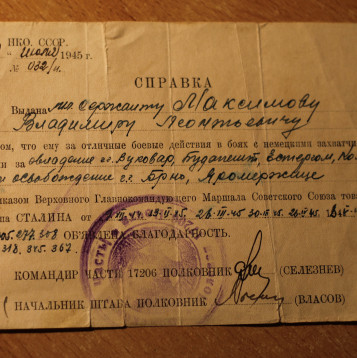 НКО. СССР.
" июля 1945 г.
№ 032/н.
СПРАВКА
Выдана мл. сержанту Максимову
Владимиру Леонтьевичу
ом, что ему за отличные боевые действия в боях с немецкими захватчи
и за овладение г.г. Вуковар, Будапешт, Эстергом,
и освобождение г.г. Брно, Яромержице
иказом Верховного Главнокомандующего Маршала Советского Союза това
СТАЛИНА от
ОБ'ЯВЛЕНА БЛАГОДАРНОСТЬ.
318, 345. 367.
КОМАНДИР ЧАСТИ 17206 ПОЛКОВНИК (СЕЛЕЗНЕВ)
НАЧАЛЬНИК ШТАБА ПОЛКОВНИК (ВЛАСОВ)